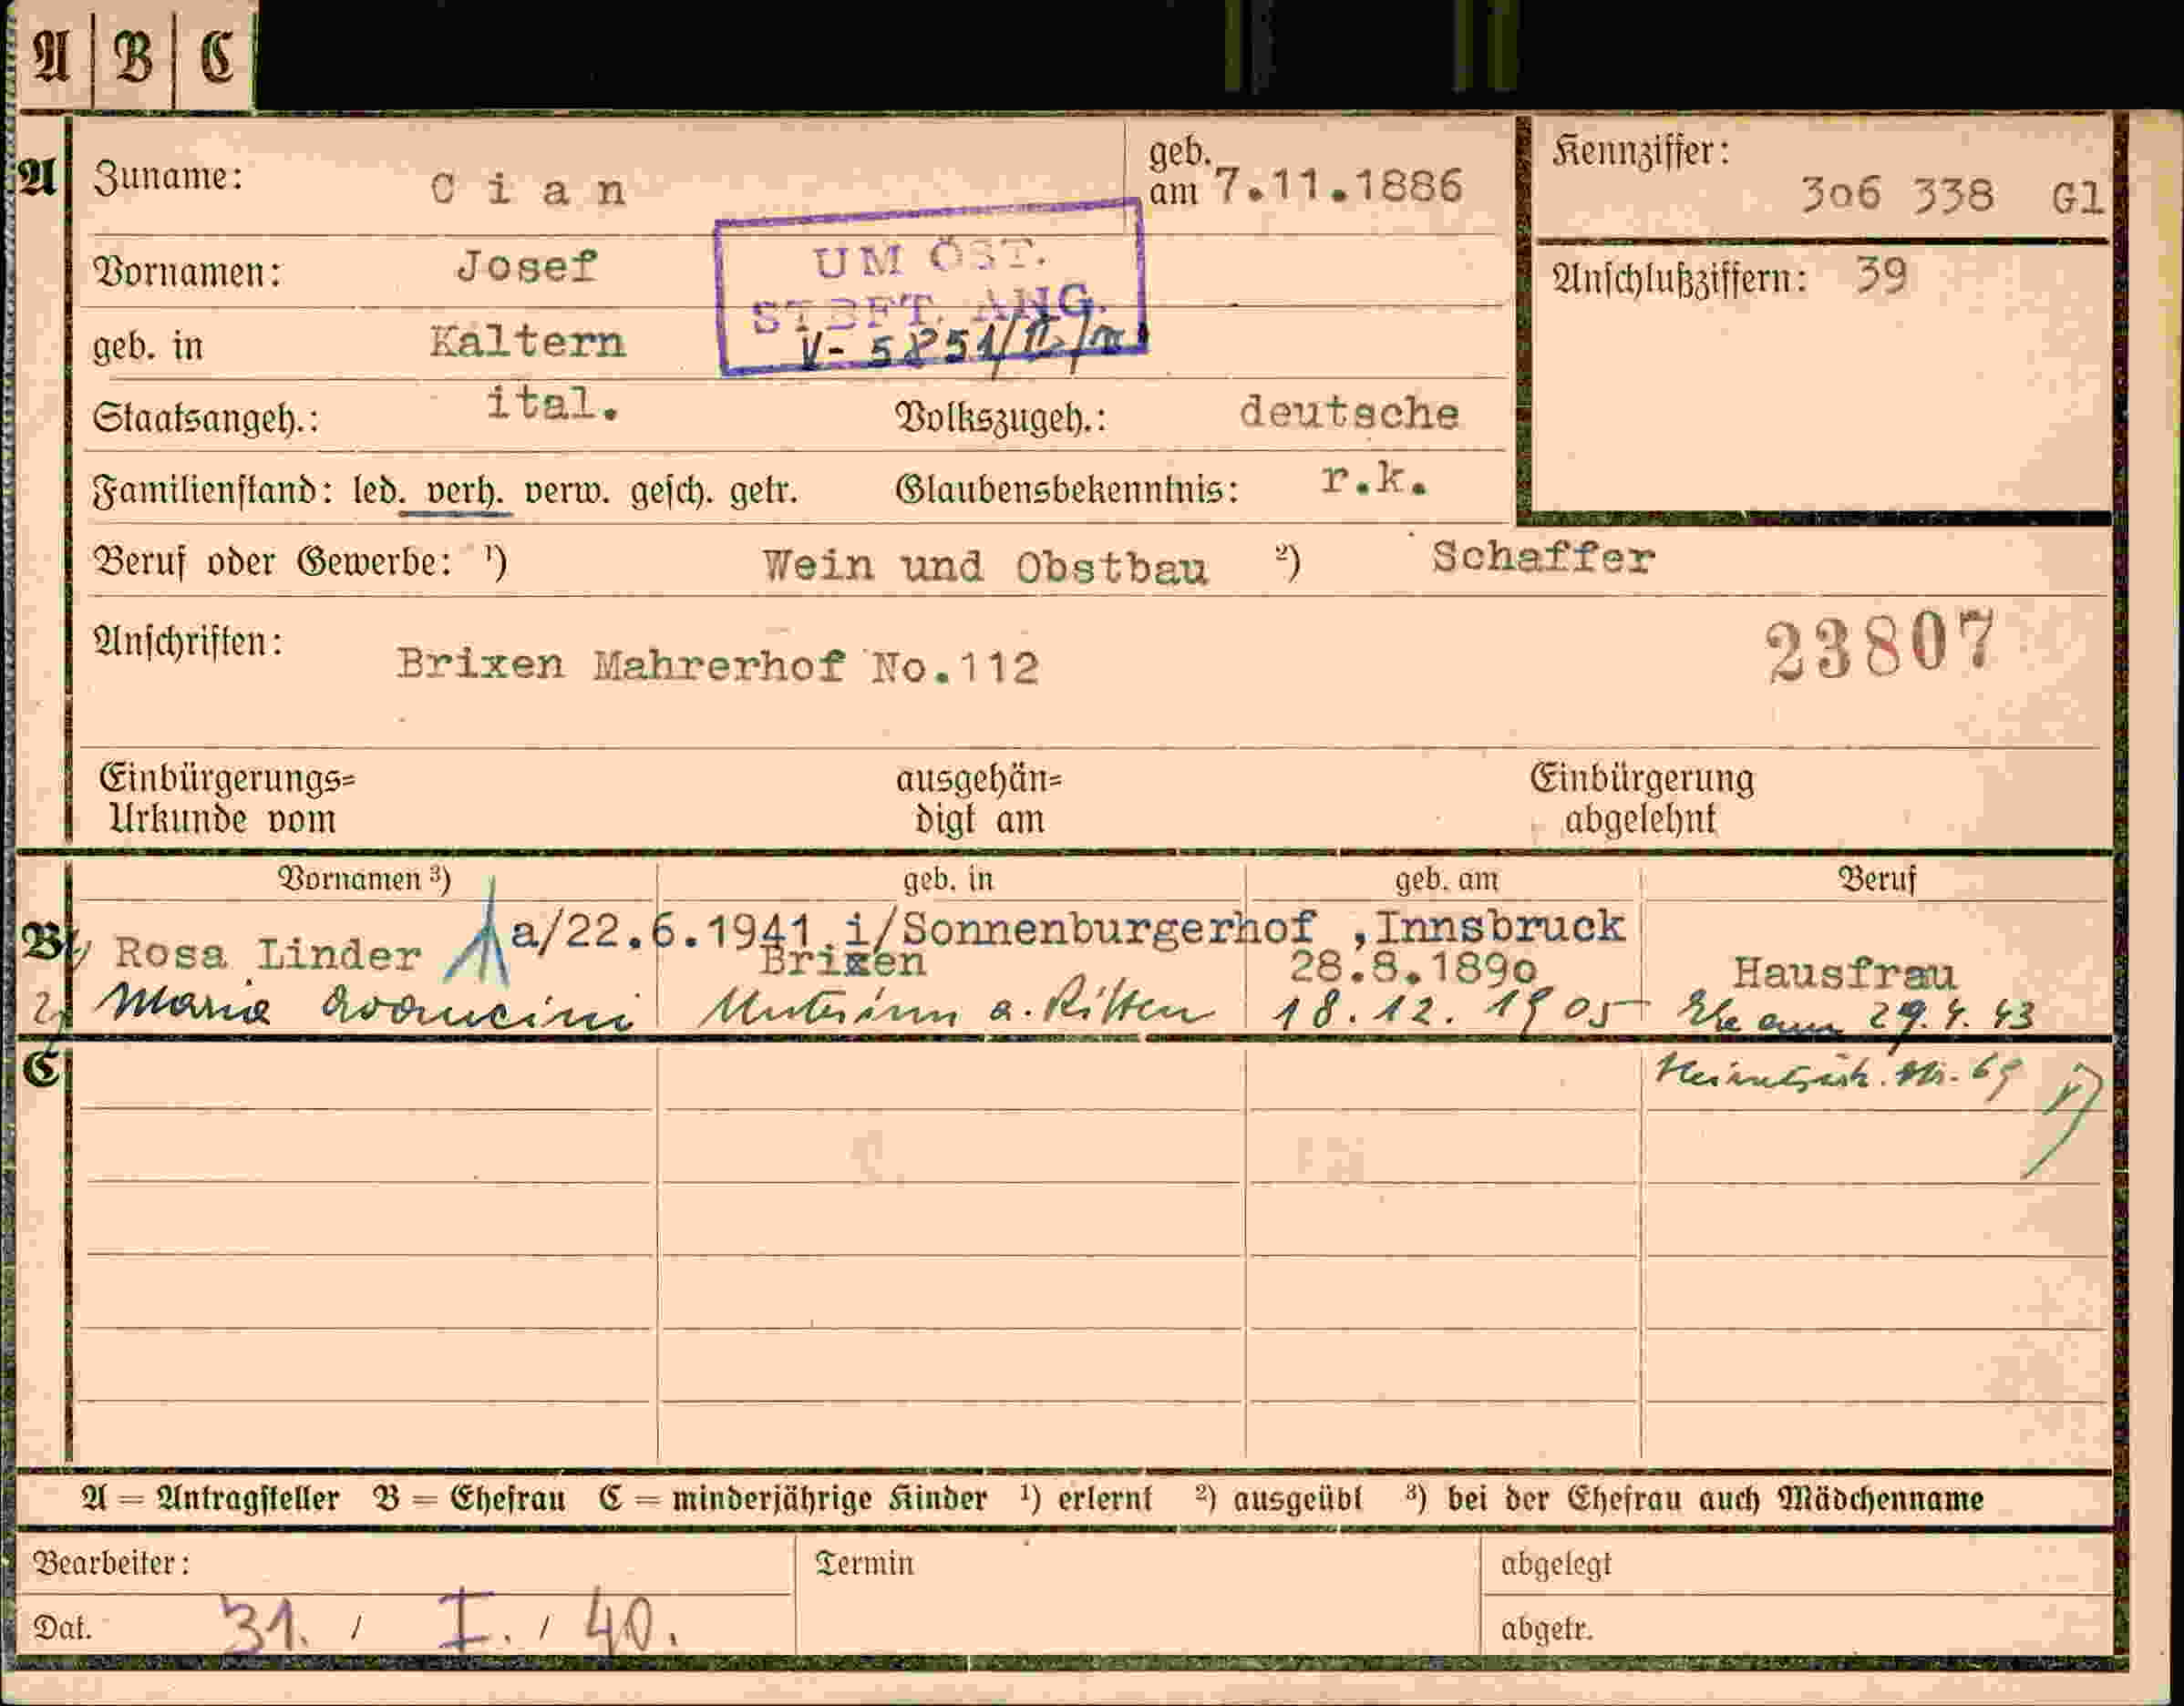 A B C
A
Zuname: Cian
geb. am 7.11.1886
Kennziffer: 306 338 Gl
Vornamen: Josef
UM ÖST.
STBFT. ANG.
V- 5851/II/
Anschlußziffern: 39
geb. in Kaltern
Staatsangeh.: ital. Volkszugeh.: deutsche
Familienstand: led. verh. verw. gesch. getr. Glaubensbekenntnis: r.k.
Beruf oder Gewerbe: ¹) Wein und Obstbau ²) Schaffer
Anschriften: Brixen Mahrerhof No.112
23807
Einbürgerungs=
Urkunde vom
ausgehän=
digt am
Einbürgerung
abgelehnt
Vornamen ³) geb. in geb. am Beruf
a/22.6.1941 i/Sonnenburgerhof ,Innsbruck
B 1) Rosa Linder Brixen 28.8.1890 Hausfrau
2) Maria Unterinn a. Ritten 18.12.1905 Ehe am 29.4.43
C
Nr. 69
A = Antragsteller B = Ehefrau C = minderjährige Kinder ¹) erlernt ²) ausgeübt ³) bei der Ehefrau auch Mädchenname
Bearbeiter: Termin abgelegt
Dat. 31. / I. / 40. abgetr.